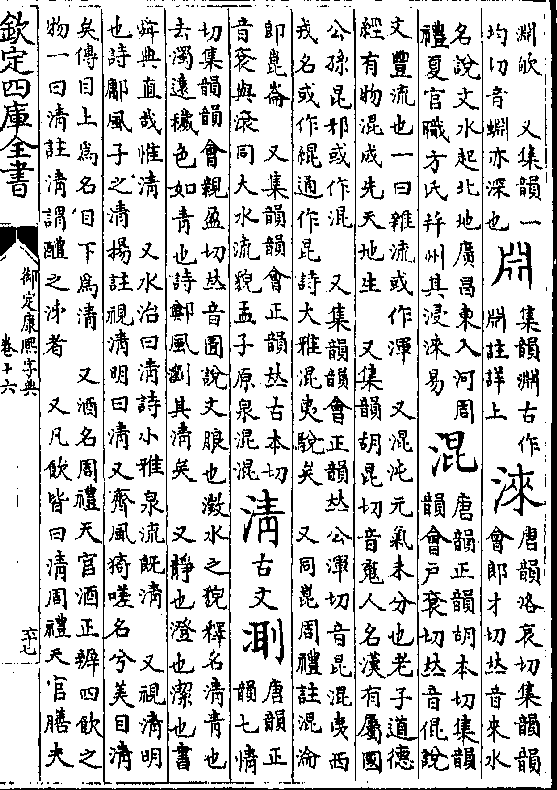 淵欨 又集韻一
均切音蜵亦深也
𣶒
集韻淵古作
𣶒註詳上
淶
唐韻洛哀切集韻韻
會郎才切𠀤音來水
名說文水起北地廣昌東入河周
禮夏官職方氏幷州其浸淶易
混
唐韻正韻胡本切集韻
韻會戸袞切𠀤音倱說
文豐流也一曰雜流或作渾 又混沌元氣未分也老子道德
經有物混成先天地生 又集韻胡昆切音䰟人名漢有屬國
公孫昆邪或作混 又集韻韻會正韻𠀤公渾切音昆混夷西
戎名或作緄通作昆詩大雅混夷駾矣 又同崑周禮註混淪
卽崑崙 又集韻韻會正韻𠀤古本切
音袞與滾同大水流貌孟子原泉混混
淸
古文
𣷾
唐韻正
韻七情
切集韻韻會親盈切𠀤音圊說文朖也澂水之貌釋名淸靑也
去濁遠穢色如靑也詩鄭風瀏其淸矣 又靜也澄也潔也書
舜典直哉惟淸 又水治曰淸詩小雅泉流旣淸 又視淸明
也詩鄘風子之淸揚註視淸明曰淸又齊風猗嗟名兮美目淸
矣傳目上爲名目下爲淸 又酒名周禮天官酒正辨四飮之
物一曰淸註淸謂醴之泲者 又凡飮皆曰淸周禮天官膳夫
欽定四庫全書
御定康熙字典
卷十六
六七